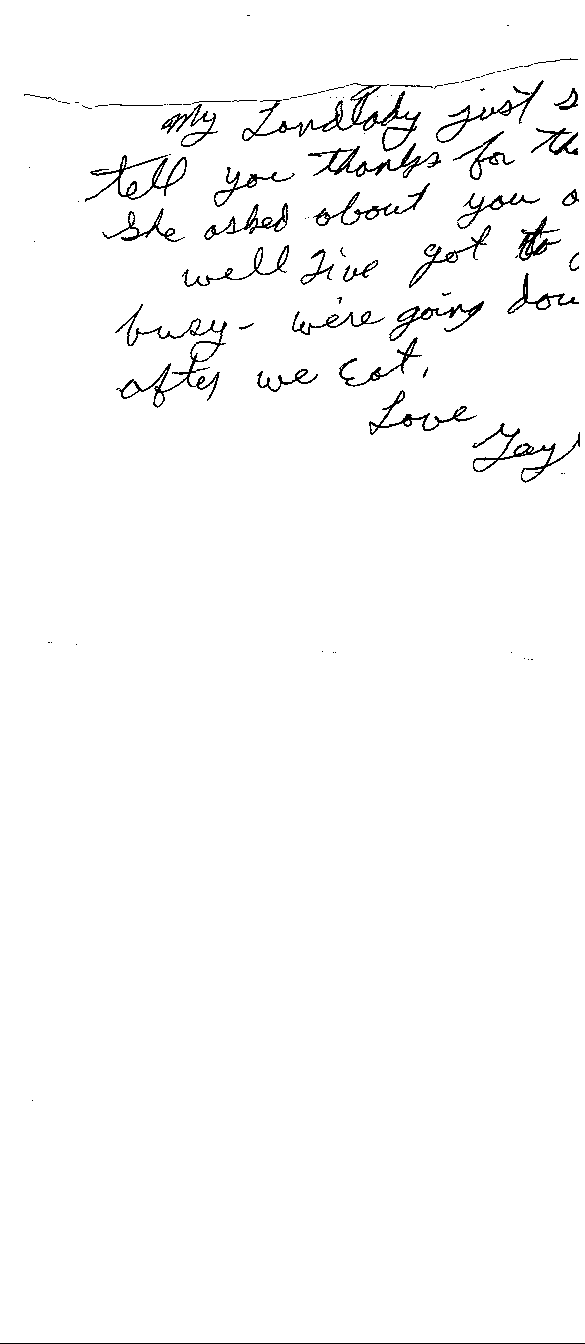 My Landlady just s
tell you thanks for the
She asked about you a
well I've got to
busy - we're going dow
after we Eat.
Love
Gay